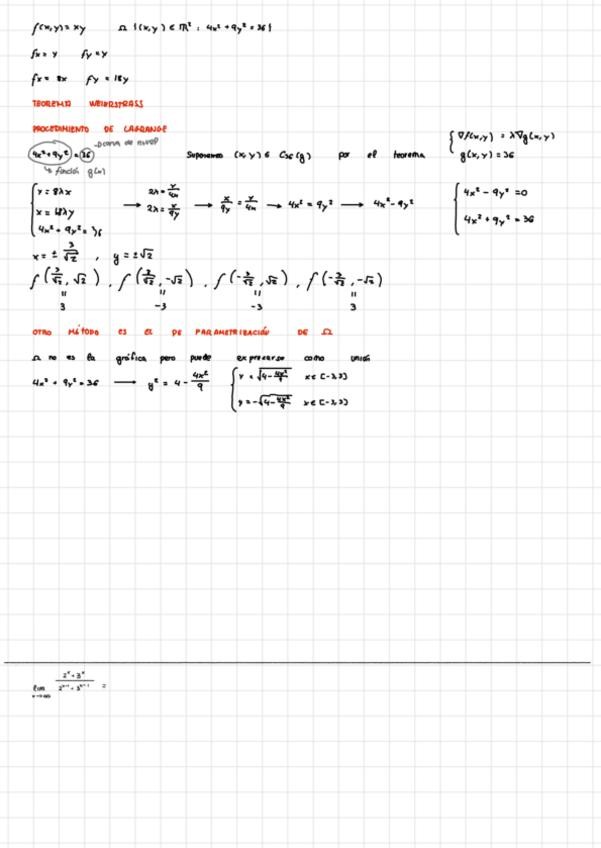 f(x,y) = xy Ω {(x,y) ∈ ℝ² : 4x² + 9y² = 36}
fx = y fy = y
fx = 8x fy = 18y
TEOREMA WEIERSTRASS
PROCEDIMIENTO DE LAGRANGE
4x² + 9y² = 36 → curva de nivel Supponemos (x,y) ∈ Cε(g) por el teorema { ∇f(x,y) = λ∇g(x,y)
g(x,y) = 36
↳ función g(x)
{ y = 8λx
x = 18λy
4x² + 9y² = 36
→ 2λ = y/4x
2λ = x/9y
→ x/9y = y/4x → 4x² = 9y² → 4x² - 9y²
{ 4x² - 9y² = 0
4x² + 9y² = 36
x = ± 3/√2 , y = ±√2
f(3/√2, √2) , f(3/√2, -√2) , f(-3/√2, √2) , f(-3/√2, -√2)
= = = =
3 -3 -3 3
OTRO MÉTODO ES EL DE PARAMETRIZACIÓN DE Ω
Ω no es la gráfica pero puede exprecarse como unión
4x² + 9y² = 36 → y² = 4 - 4x²/9 { y = √(4 - 4x²/9) x ∈ [-3,3]
y = -√(4 - 4x²/9) x ∈ [-3,3]
lim 2ˣ + 3ˣ / 2ˣ⁺¹ + 3ˣ⁺¹ =